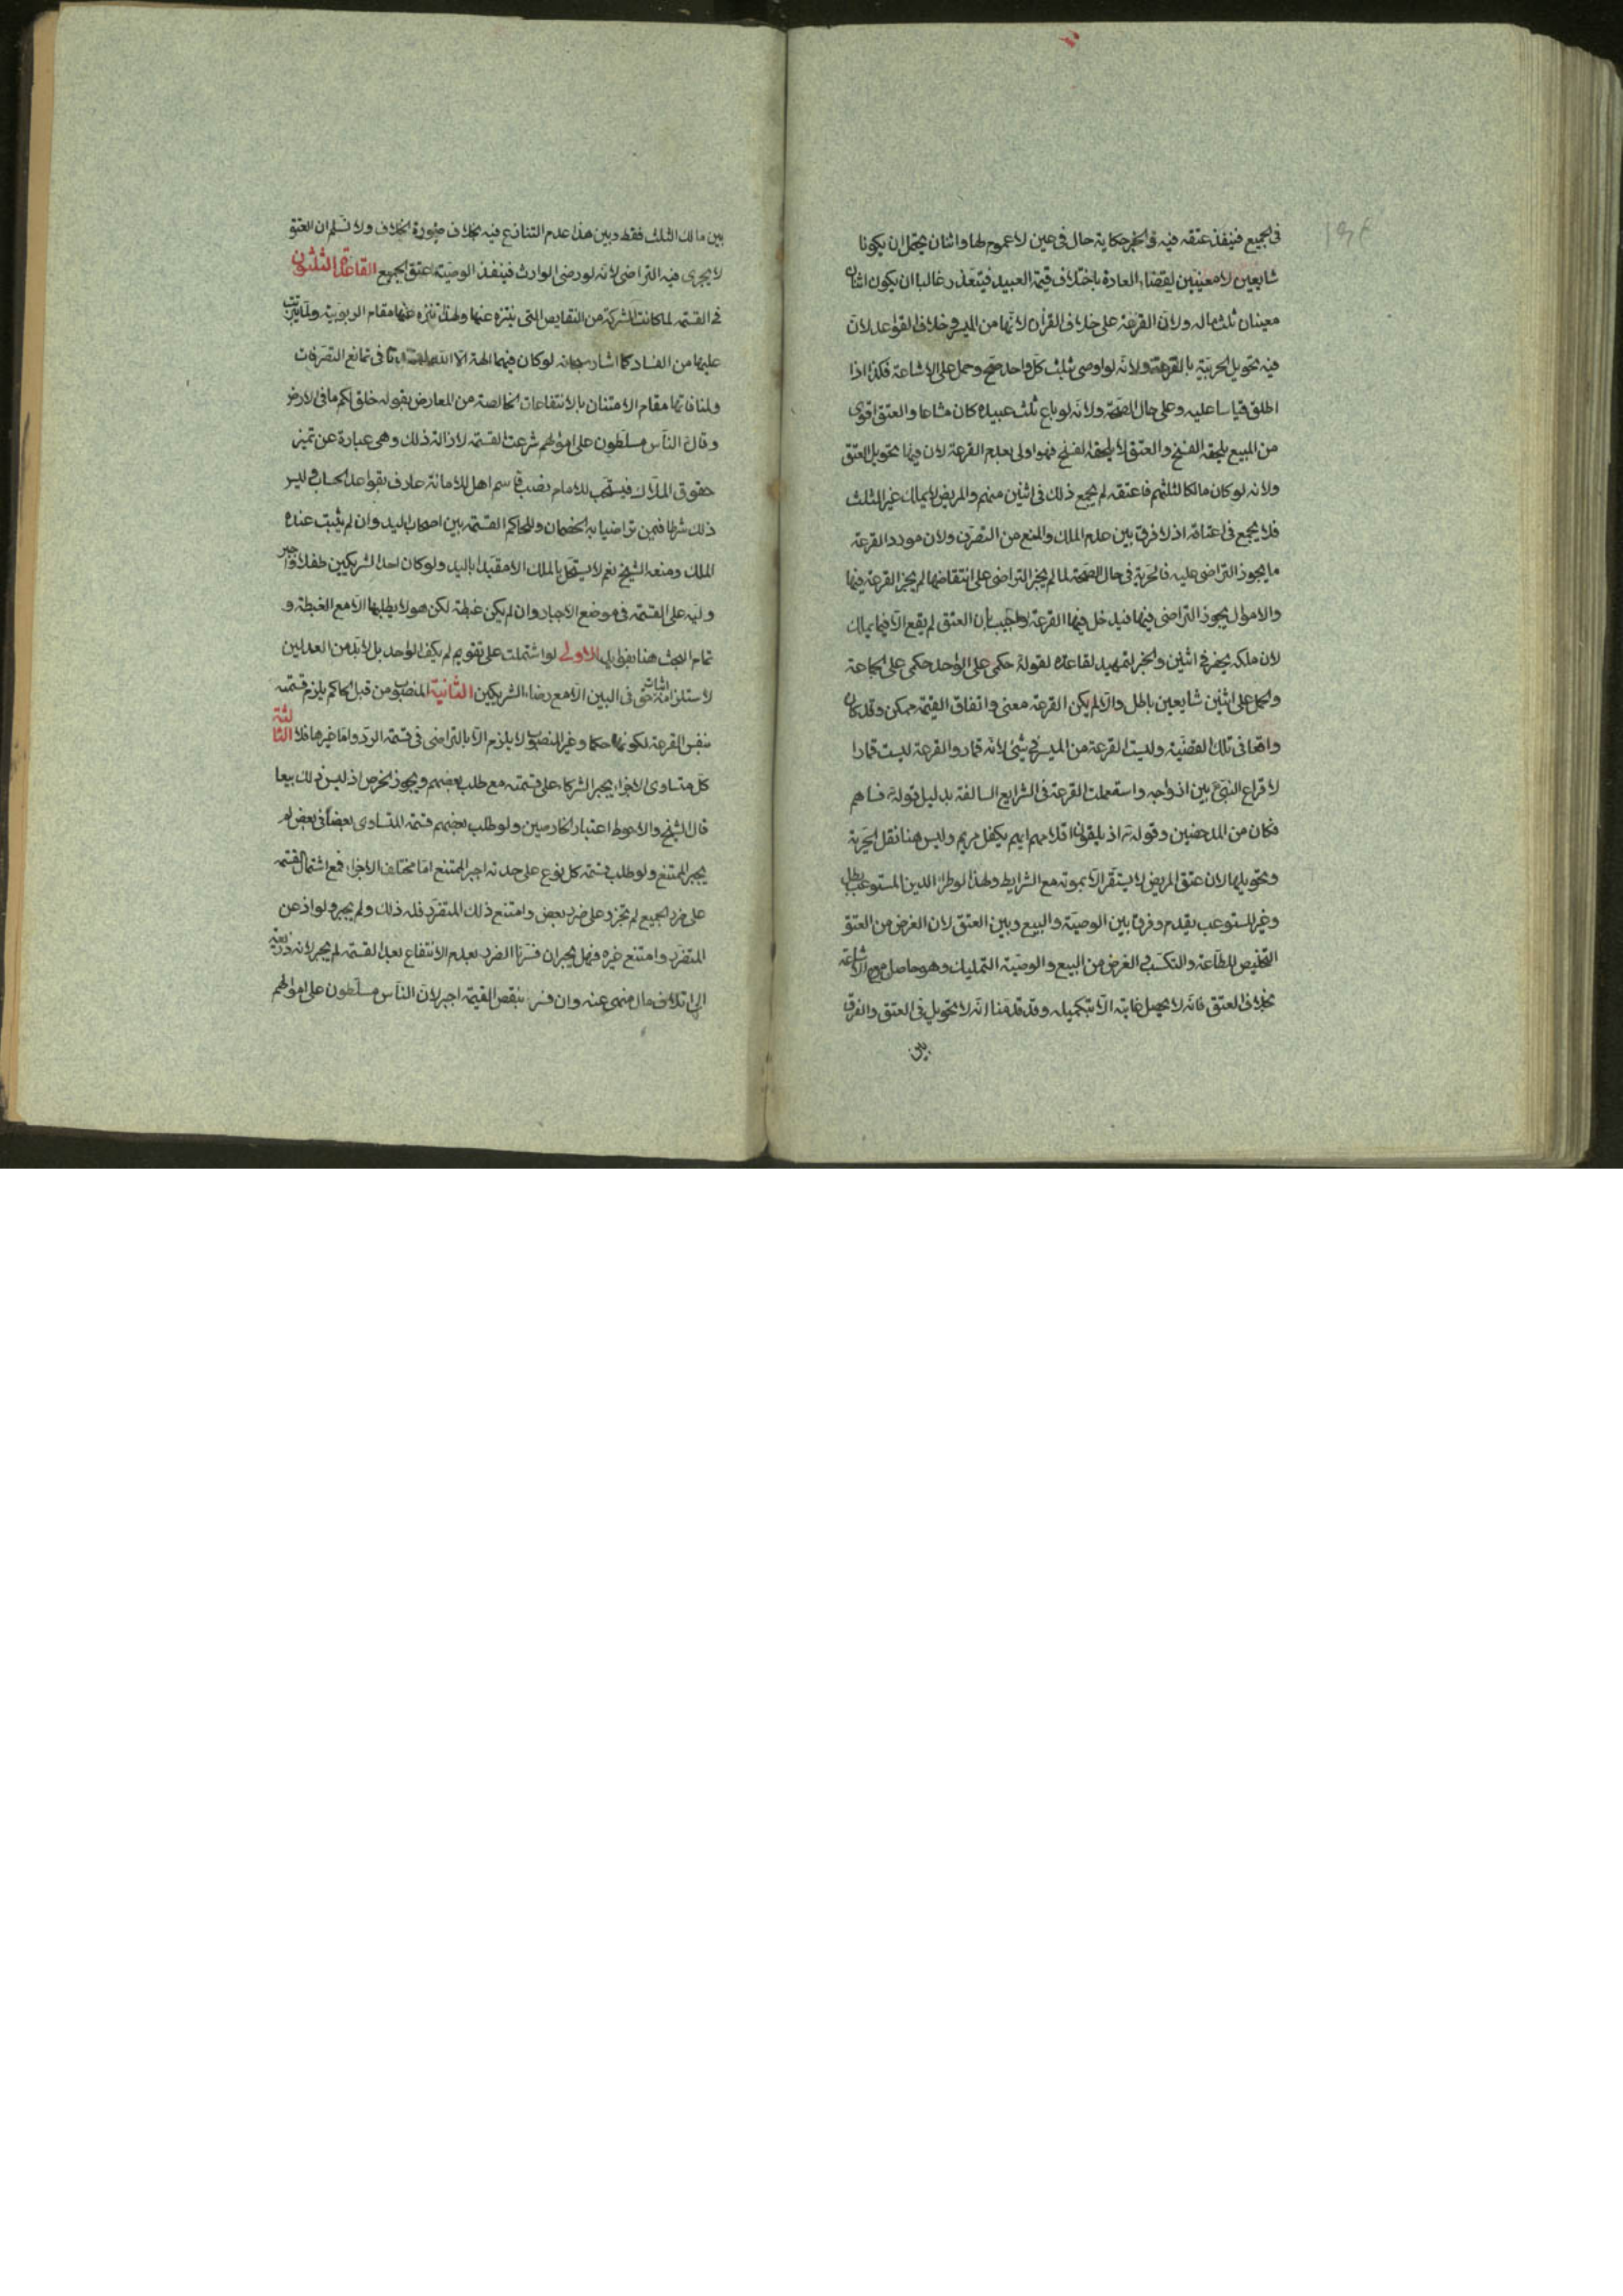 فى الجميع فينفذ عتقه فيه والخبر حكاية حال فى عين لا عموم لها واثنان يحتمل ان يكونا
شايعين لا معينين لقضاء العادة باختلاف قيمة العبيد فيتعذر غالبا ان يكون اثنان
معينان ثلث ماله ولان القرعة على خلاف القرآن لانها من الميسر وخلاف القواعد لان
فيه تحويل الحرية بالقرعة ولانه لو اوصى بثلث كل واحد صح وحمل على الاشاعة فكذا اذا
اطلق قياسا عليه وعلى حال الصحة ولانه لو باع ثلث عبيده كان مشاعا والعتق اقوى
من المبيع يلحقه الفسخ والعتق لا يلحقه الفسخ فهو اولى بعدم القرعة لان فيها تحويل العتق
ولانه لو كان مالكا لثلثهم فاعتقه لم يجمع ذلك فى اثنين منهم والمريض لا يملك غير الثلث
فلا يجمع فى اعتاقه اذ لا فرق بين عدم الملك والمنع من التصرف ولان مورد القرعة
ما يجوز التراضى عليه فالحرية فى حال الصحة لما لم يجز التراضى على انتقاضها لم يجز القرعة فيها
والاموال يجوز التراضى فيها فيدخل فيها القرعة واجيب بان العتق لم يقع الا فيما يملك
لان ملكه ينحصر فى اثنين والخبر لتمهيد القاعدة لقوله حكمى على الواحد حكمى على الجماعة
والحمل على اثنين شايعين باطل والا لم يكن القرعة معنى واتفاق القيمة ممكن وقد كان
واقعا فى تلك القضية وليست القرعة من الميسر فى شئ لانه قمار والقرعة ليست قمارا
لاقراع النبى ع بين ازواجه واستعملت القرعة فى الشرايع السالفة بدليل قوله تع فساهم
فكان من المدحضين وقوله تع اذ يلقون اقلامهم ايهم يكفل مريم وليس هنا نقل الحرية
وتحويلها لان عتق المريض لا يستقر الا بموته مع الشرايط ولهذا لو طرأ الدين المستوعب بطل
وغير المستوعب يقدم وفرق بين الوصية والبيع وبين العتق لان الغرض من العتق
التخليص للطاعة والتكسب والغرض من البيع والوصية التمليك وهو حاصل مع الاشاعة
بخلاف العتق فانه لا يحصل غايته الا بتكميله وقد قدمنا انه لا تحويل فى العتق والفرق
بين
بين مالك الثلث فقط وبين هذا عدم التنازع فيه بخلاف صورة الخلاف ولا نسلم ان العتق
لا يجرى فيه التراضى لانه لو رضى الوارث فينفذ الوصية عتق الجميع القاعدة الثلثون
فى القسمة لما كانت الشركة من النقايص التى ينزه عنها ولهذا تنزه عنها مقام الربوبية ولما يترتب
عليها من الفساد كما اشار سبحانه لو كان فيهما الهة الا الله لفسدتا فى تمانع التصرفات
ولمنافاتها مقام الامتنان بالانتفاعات الخالصة من المعارض بقوله خلق لكم ما فى الارض
وقال الناس مسلطون على اموالهم شرعت القسمة لازالة ذلك وهى عبارة عن تميز
حقوق الملاك فيستحب للامام نصب قاسم اهل للامانة عارف بقواعد الحساب وليس
ذلك شرطا فيمن تراضيا به الخصمان وللحاكم القسمة بين اصحاب اليد وان لم يثبت عنده
الملك ومنعه الشيخ نعم لا يسجل بالملك الا مقيدا باليد ولو كان احد الشريكين طفلا اجبر
وليه على القسمة فى موضع الاجبار وان لم يكن غبطة لكن هو لا يطلبها الا مع الغبطة و
تمام البحث هنا بفوايد الاولى لو اشتملت على تقويم لم يكف الواحد بل لابد من العدلين
لاستلزامه اثبات حق فى البين الا مع رضاء الشريكين الثانية المنصوب من قبل الحاكم يلزم قسمته
بنفس القرعة لكونها حكما وغير المنصوب لا يلزم الا بالتراضى فى قسمة الرد واما غيرها فلا الثالثة
كل متساوى الاجزاء يجبر الشركاء على قسمته مع طلب بعضهم ويجوز الخرص اذ ليس ذلك بيعا
قال الشيخ والاحوط اعتبار الخارصين ولو طلب بعضهم قسمة المتساوى بعضا فى بعض لم
يجبر الممتنع ولو طلب قسمة كل نوع على حدته اجبر الممتنع اما مختلف الاجزاء فمع اشتمال القسمة
على ضرر الجميع لم تجز وعلى ضرر بعض وامتنع ذلك المتضرر فله ذلك ولم يجبر ولو اذعن
المتضرر وامتنع غيره فهل يجبر ان فسرنا الضرر بعدم الانتفاع بعد القسمة لم يجبر لانه ذريعة
الى اتلاف مال منهى عنه وان فسر بنقص القيمة اجبر لان الناس مسلطون على اموالهم